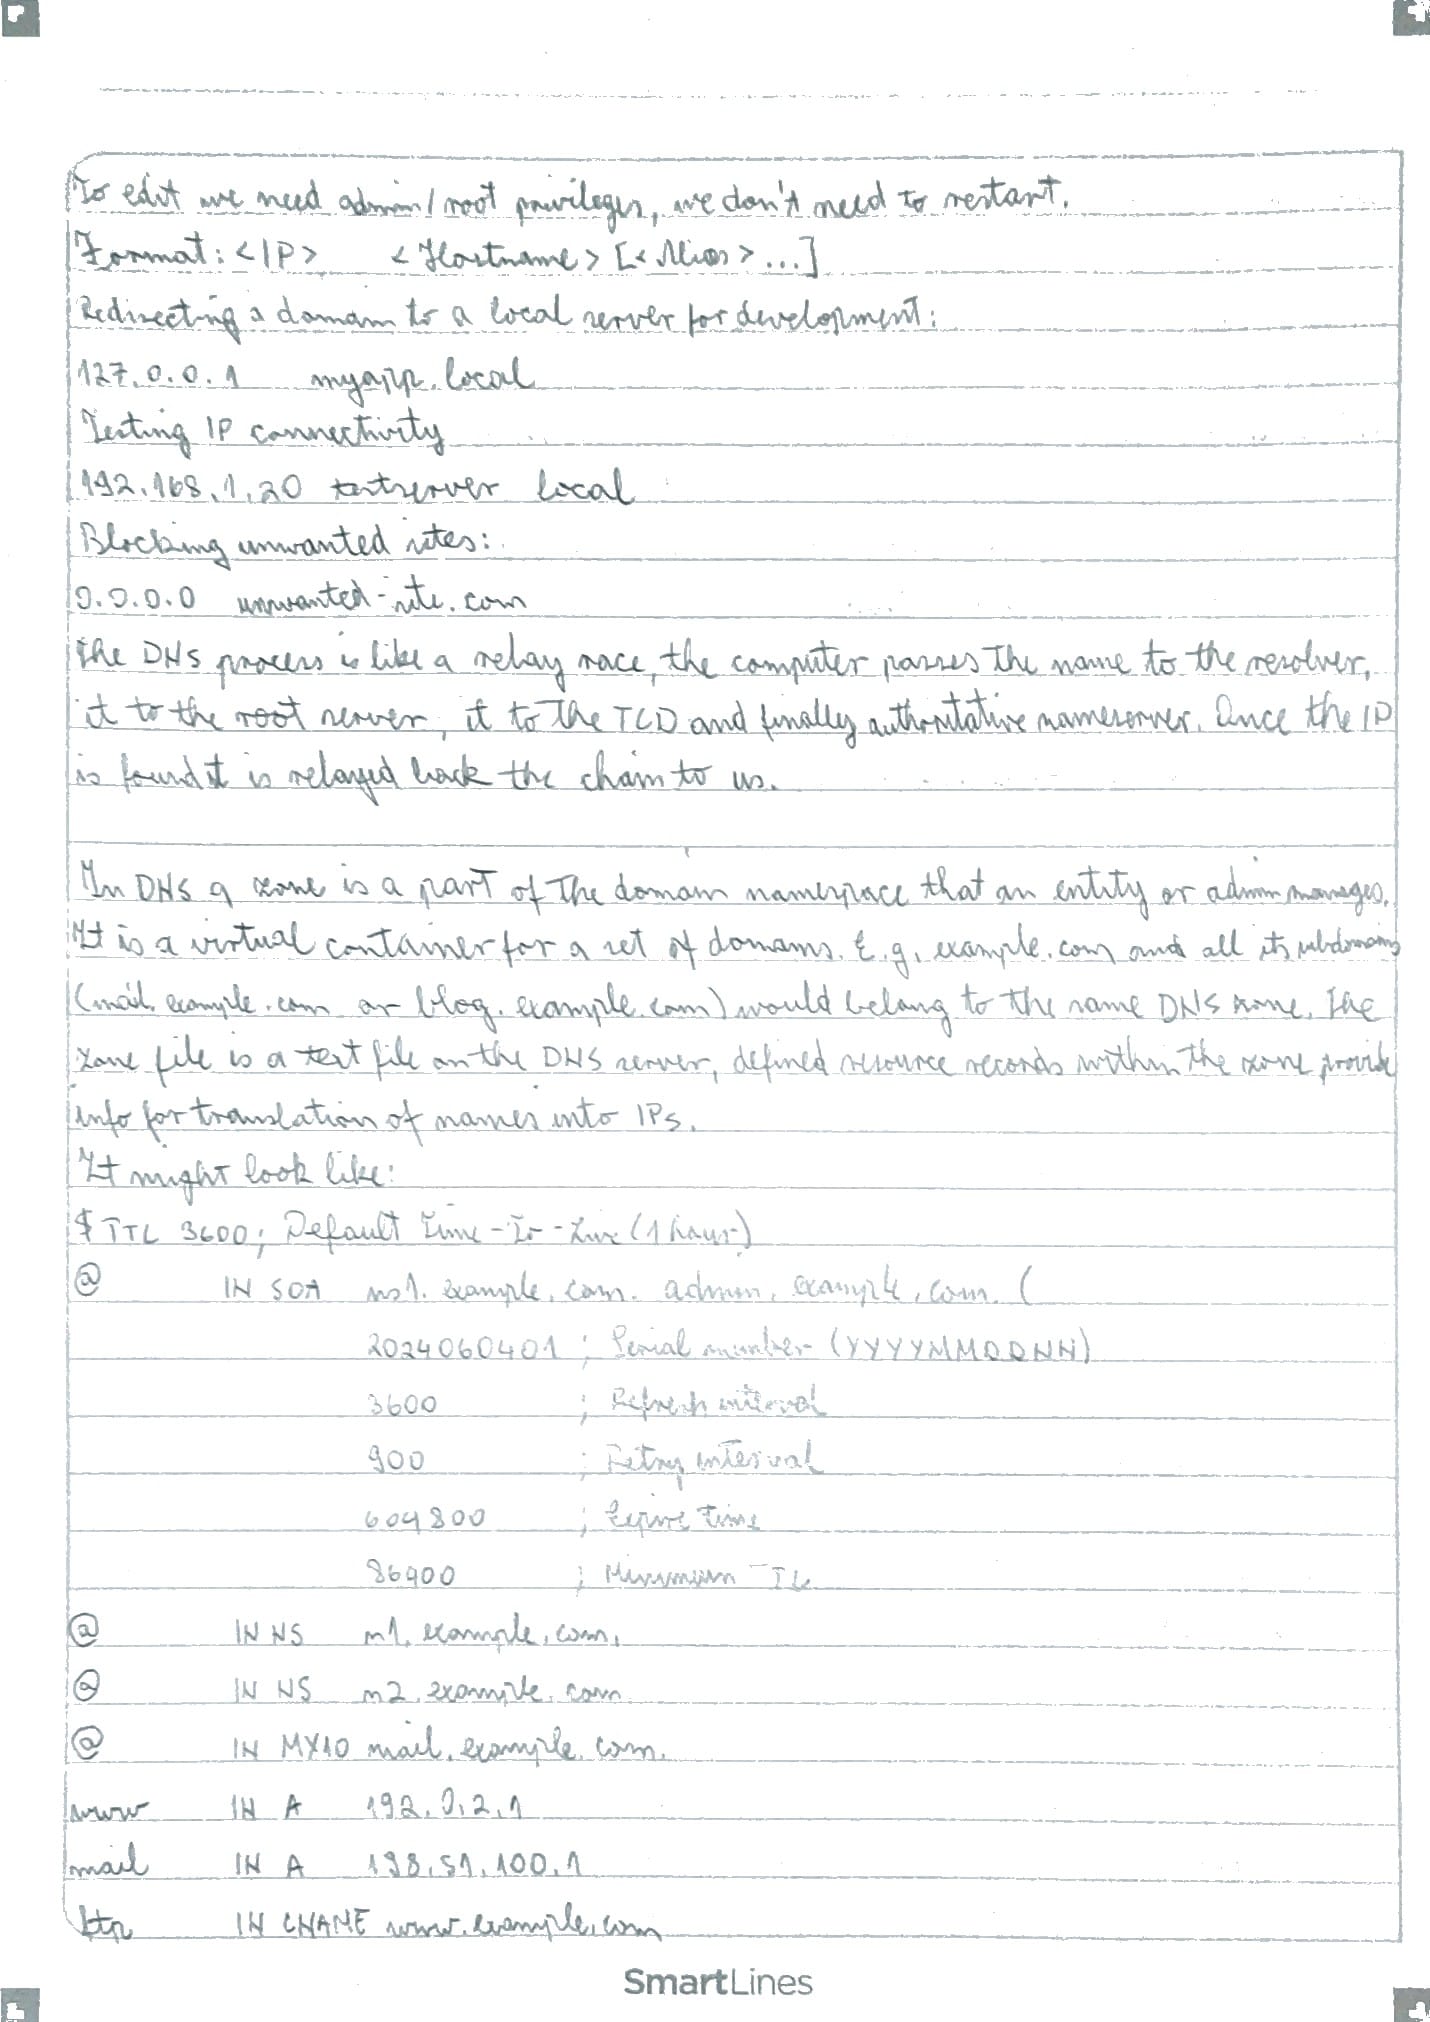 To edit we need admin/root privileges, we don't need to restart.
Format: <IP> <Hostname> [<Alias>...]
Redirecting a domain to a local server for development:
127.0.0.1 myapp.local
Testing IP connectivity
192.168.1.20 testserver local
Blocking unwanted sites:
0.0.0.0 unwanted-site.com
The DNS process is like a relay race, the computer passes the name to the resolver,
it to the root server, it to the TLD and finally authoritative nameserver. Once the IP
is found it is relayed back the chain to us.
In DNS a zone is a part of the domain namespace that an entity or admin manages.
It is a virtual container for a set of domains. E.g. example.com and all its subdomains
(mail.example.com or blog.example.com) would belong to the same DNS zone. The
zone file is a text file on the DNS server, defined resource records within the zone provide
info for translation of names into IPs.
It might look like:
$TTL 3600; Default Time-To-Live (1 hour)
@ IN SOA ns1.example.com. admin.example.com. (
2024060401 ; Serial number (YYYYMMDDNN)
3600 ; Refresh interval
900 ; Retry interval
604800 ; Expire time
86400 ; Minimum TTL
@ IN NS n1.example.com.
@ IN NS n2.example.com.
@ IN MX10 mail.example.com.
www IN A 192.0.2.1
mail IN A 198.51.100.1
ftp IN CNAME www.example.com
SmartLines